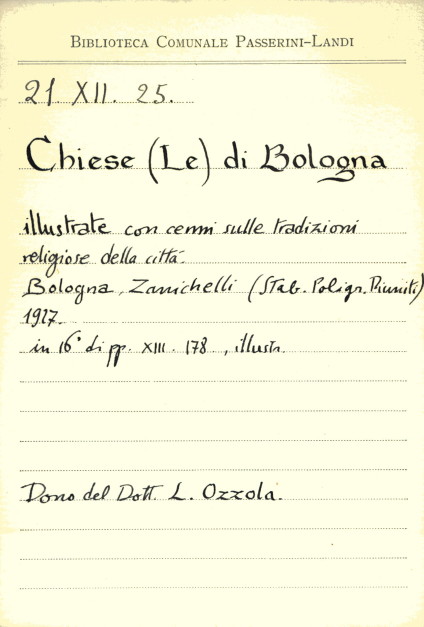 BIBLIOTECA COMUNALE PASSERINI-LANDI
21. XII. 25.
Chiese (Le) di Bologna
illustrate con cenni sulle tradizioni
religiose della città.
Bologna, Zanichelli (Stab. Poligr. Riuniti)
1927.
in 16° di pp. XIII. 178, illustr.
Dono del Dott. L. Ozzola.